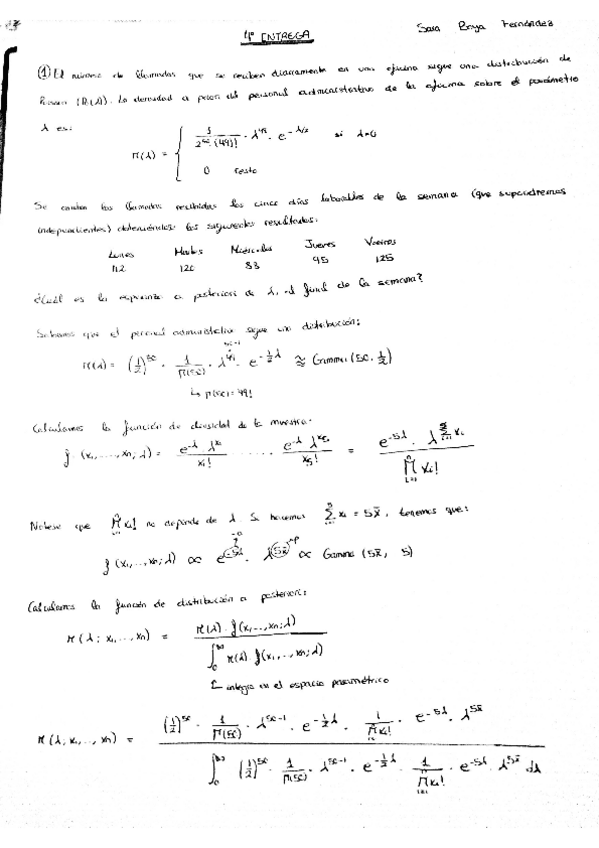 4ª ENTREGA
Sara Fernández
① El número de llamadas que se reciben diariamente en una oficina sigue una distribución de
Poisson (P(λ)). La densidad a priori del personal administrativo de la oficina sobre el parámetro
λ es:
π(λ) = { 1/(2^50 · (49)!) · λ^49 · e^(-λ/2) si λ>0
0 resto
Se anotan las llamadas recibidas los cinco días laborables de la semana (que supondremos
independientes) obteniéndose los siguientes resultados:
Lunes Martes Miércoles Jueves Viernes
112 120 83 95 125
¿Cuál es la esperanza a posteriori de λ, al final de la semana?
Sabemos que el personal administrativo sigue una distribución:
50-1
π(λ) = (1/2)^50 · 1/Γ(50) · λ^49 · e^(-1/2 λ) ≈ Gamma (50, 1/2)
↳ Γ(50) = 49!
Calculamos la función de densidad de la muestra:
f (x₁, ..., xn; λ) = e^(-λ) λ^(x₁) / x₁! · ..... · e^(-λ) λ^(x₅) / x₅! = e^(-5λ) · λ^(Σ xi) / Π xi!
Nótese que Π xi! no depende de λ. Si hacemos Σ xi = 5x̄, tenemos que:
f (x₁, .., xn; λ) ∝ e^(-5λ) · λ^(5x̄) ∝ Gamma (5x̄, 5)
Calculamos la función de distribución a posteriori:
π (λ; x₁, ..., xn) = π(λ) · f(x₁, ..., xn; λ) / ∫₀^∞ π(λ) · f(x₁, ..., xn; λ)
integra en el espacio paramétrico
π (λ; x₁, .., xn) = (1/2)^50 · 1/Γ(50) · λ^(50-1) · e^(-1/2 λ) · 1/Π xi! · e^(-5λ) · λ^(5x̄)
/ ∫₀^∞ (1/2)^50 · 1/Γ(50) · λ^(50-1) · e^(-1/2 λ) · 1/Π xi! · e^(-5λ) · λ^(5x̄) dλ